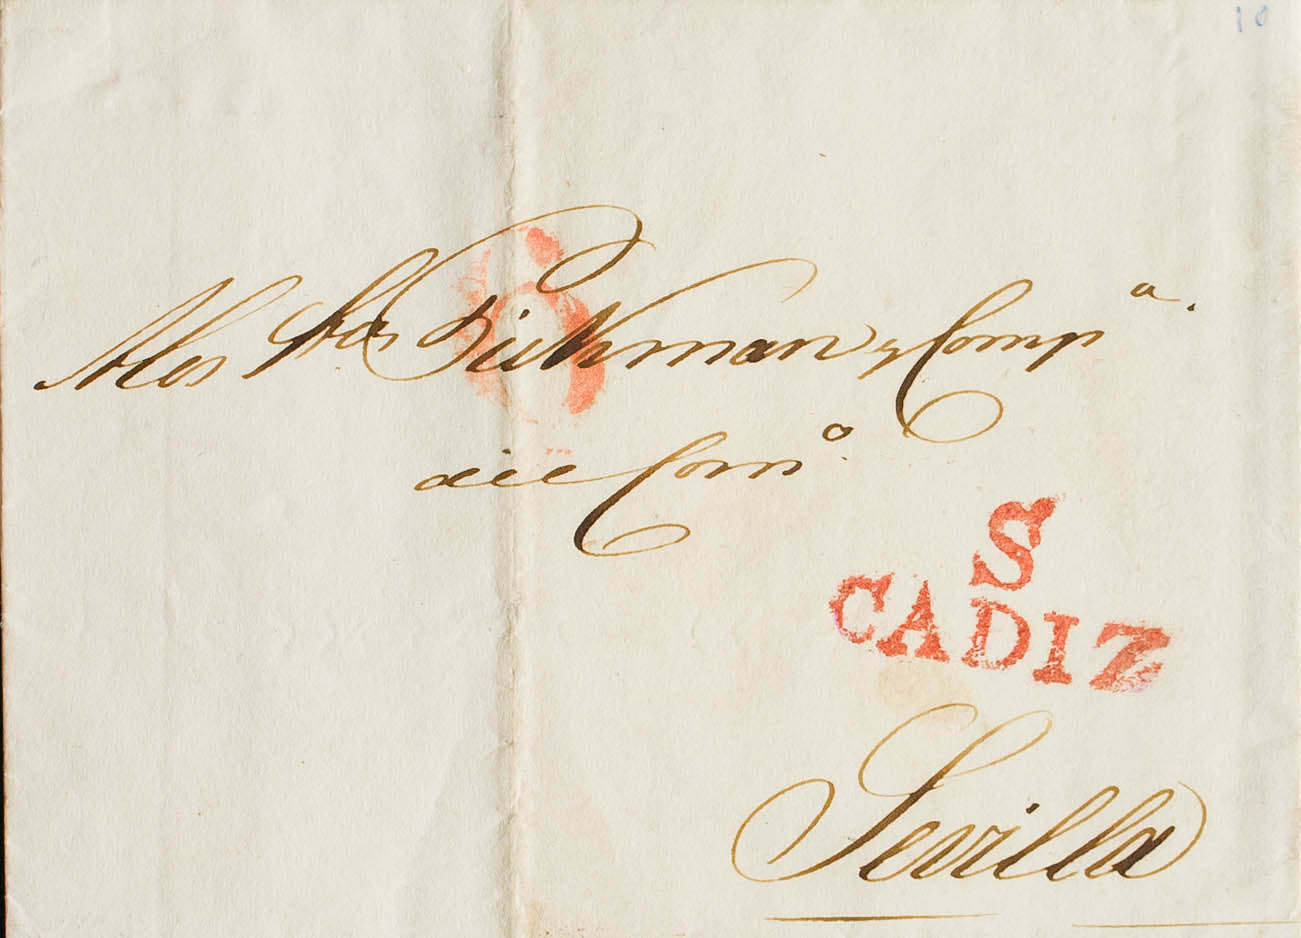 10
A los S.res Pickman y Comp.a
del Com.o
S
CADIZ
Sevilla